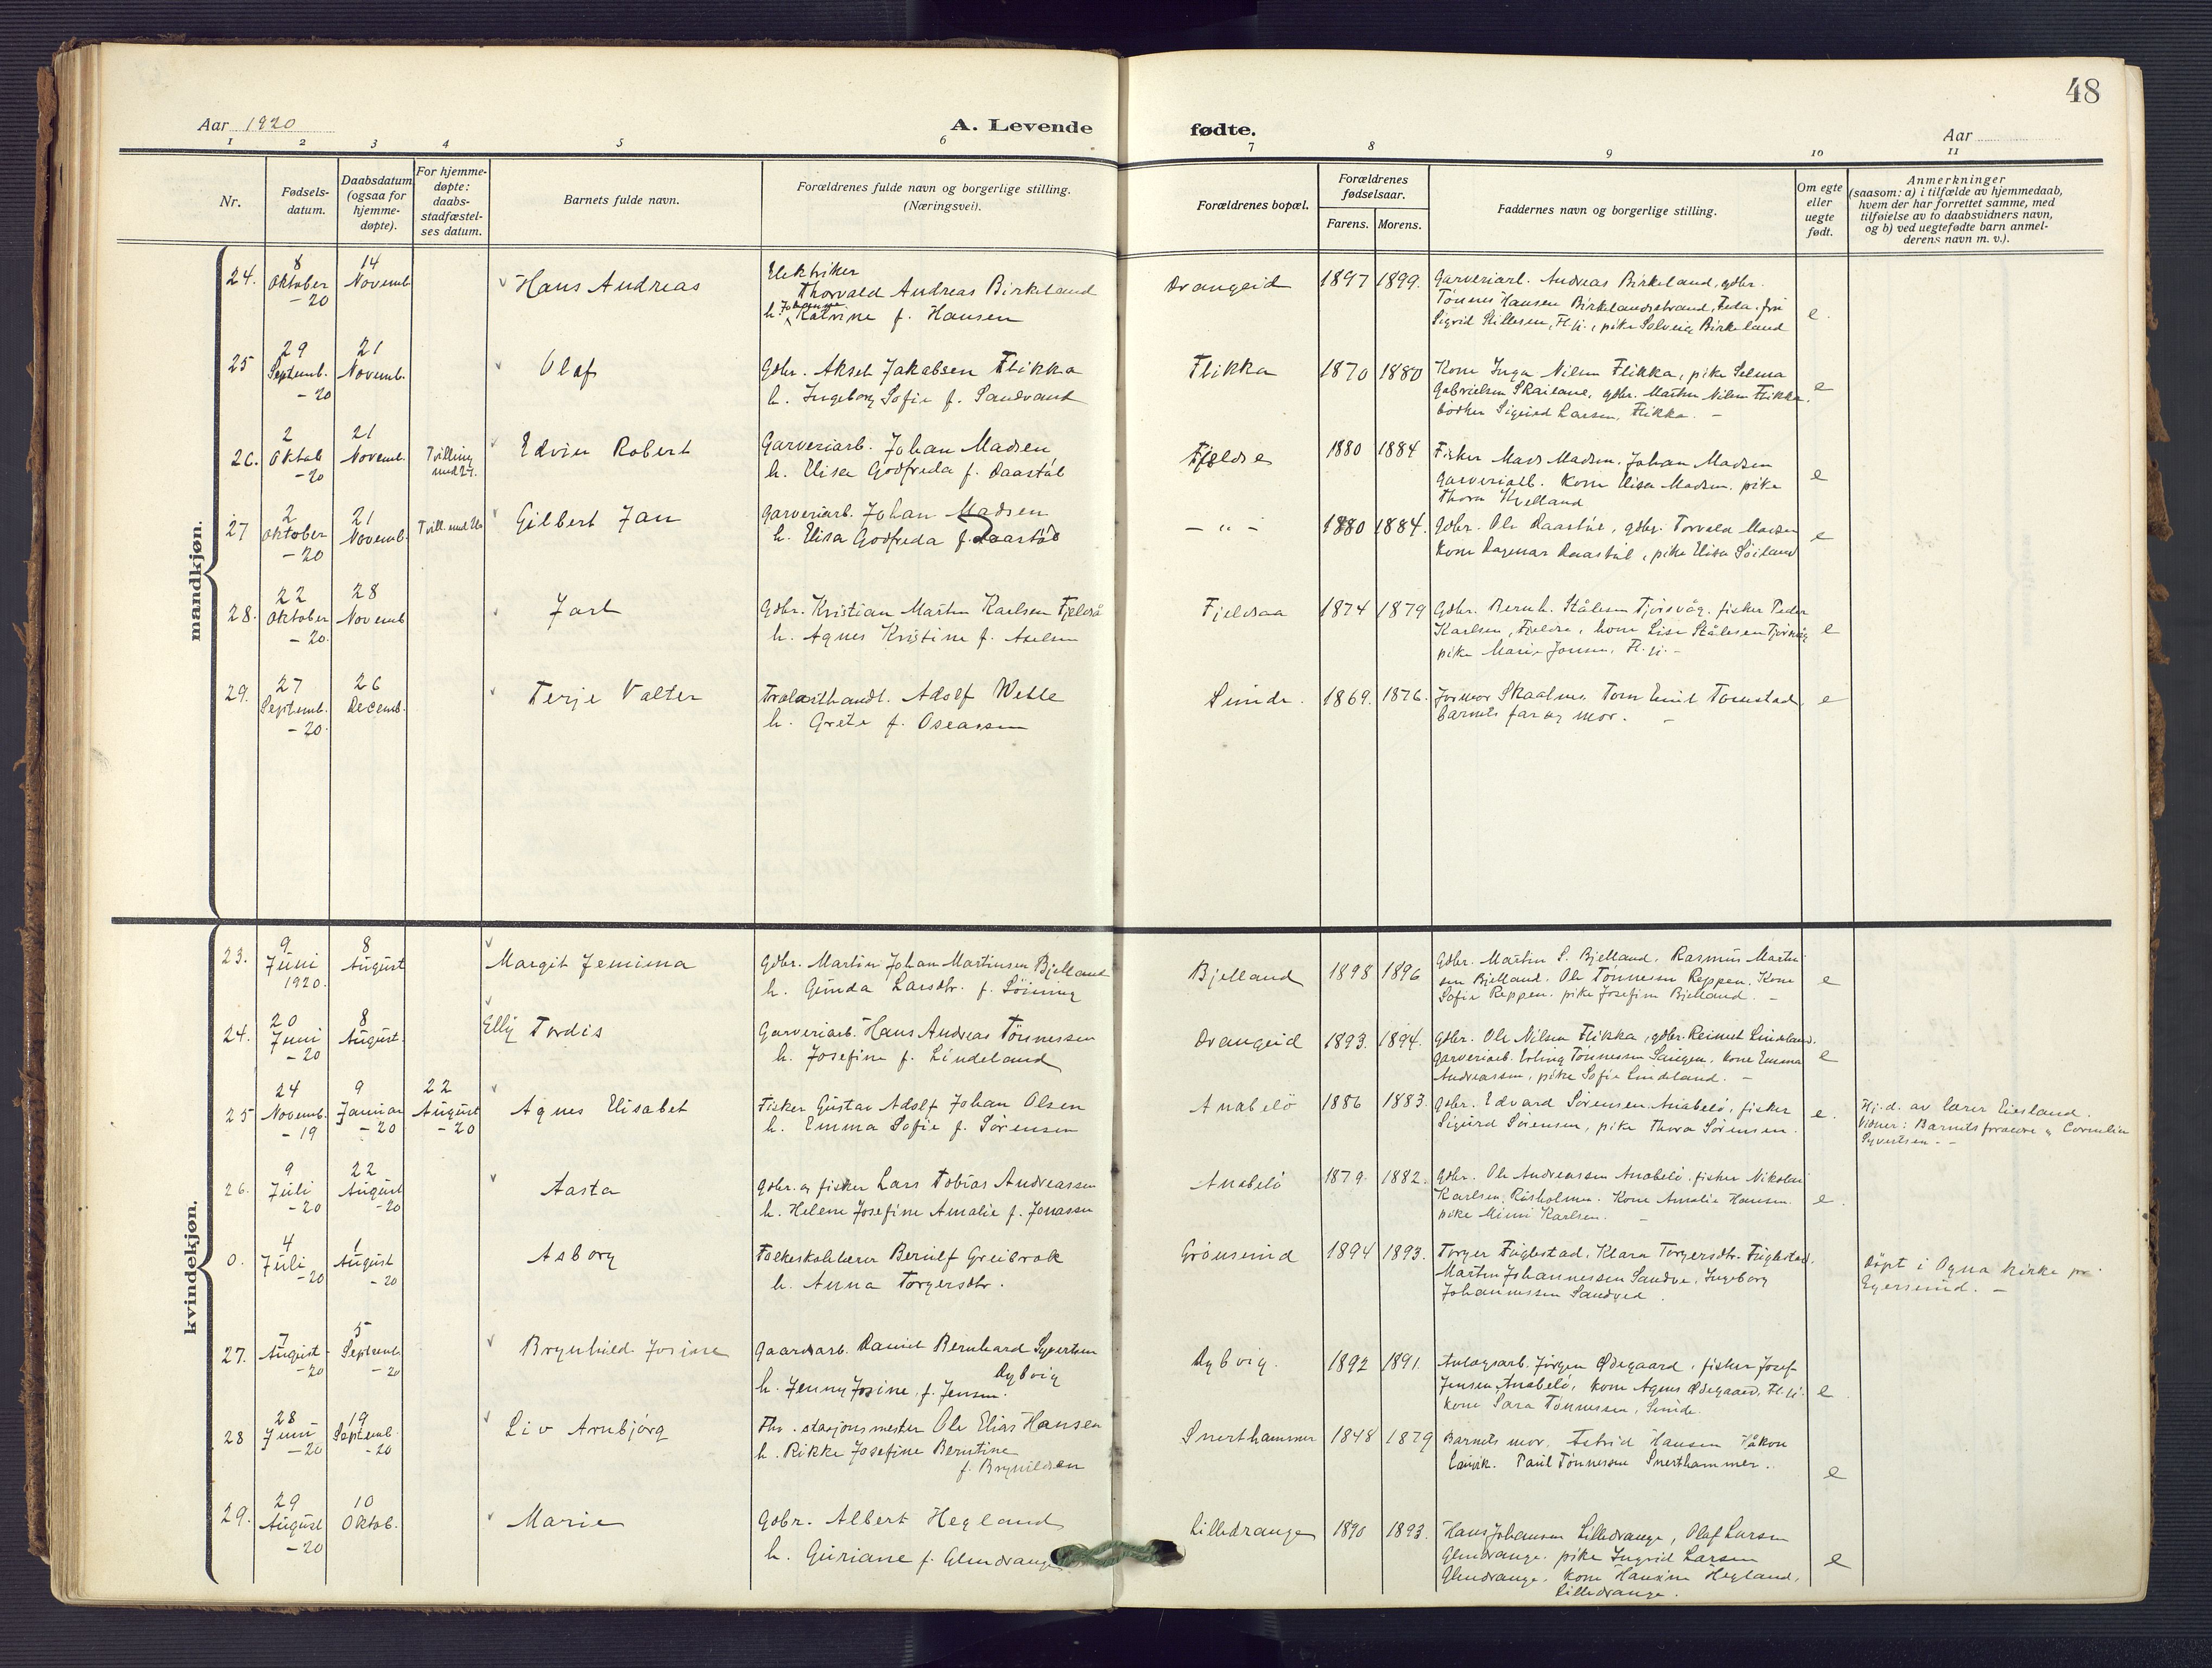 48
Aar 1920
A. Levende fødte.
Aar
1 2 3 4 5 6 7 8 9 10 11
Nr.
Fødsels-
datum.
Daabsdatum
(ogsaa for
hjemme-
døpte).
For hjemme-
døpte:
daabs-
stadfæstel-
ses datum.
Barnets fulde navn.
Forældrenes fulde navn og borgerlige stilling.
(Næringsvei).
Forældrenes bopæl.
Forældrenes
fødselsaar.
Farens. Morens.
Faddernes navn og borgerlige stilling.
Om egte
eller
uegte
født.
Anmerkninger
(saasom: a) i tilfælde av hjemmedaab,
hvem der har forrettet samme, med
tilføielse av to daabsvidners navn,
og b) ved uegtefødte barn anmel-
derens navn m. v.).
mandkjøn.
24.
8
Oktober
-20
14
Novemb
Hans Andreas
Elektriker
Thorvald Andreas Birkeland
h. Johanne Katrine f. Hansen
Drangeid
1897 1899.
Garveriarb. Andreas Birkeland, gdbr.
Tønnes Hansen Birkelandsstrand, Feda. frk
Sigrid Stillesen, Fl.fj., pike Solveig Birkeland
e.
25
29
Septemb.
-20
21
Novemb.
Olaf
Gdbr. Aksel Jakobsen Flikka
h. Ingeborg Sofie f. Sandvand
Flikka
1870 1880
Kone Inga Nilsen Flikka, pike Selma
Gabrielsen Skailand, gdbr. Martin Nilsen Flikka.
bødker Sigurd Larsen, Flikka. -
e
26.
2
Oktob
-20
21
Novemb.
Tvilling
med 27.
Edvin Robert
Garveriarb. Johan Madsen
h. Elisa Godfreda f. Daastøl
Fjeldse
1880 1884
Fisker Mads Madsen. Johan Madsen
Garveriarb. Kone Elisa Madsen. pike
Thora Kvelland
e
27
2
Oktober
-20
21
Novemb.
Tvill. med 26
Gilbert Jan
Garveriarb. Johan Madsen
h. Elisa Godfreda f. Daastøl
- " -
1880 1884.
Gdbr. Ole Daastøl, gdbr. Torvald Madsen
Kone Dagmar Daastøl, pike Elisa Søiland
e
28.
22
Oktober
-20.
28
Novemb
Jarl
Gdbr. Kristian Martin Karlsen Fjeldså
h. Agnes Kristine f. Axelsen
Fjeldsaa
1874 1879
Gdbr. Bernh. Stålesen Tjørsvåg. fisker Peder
Karlsen, Fjeldse, kone Lise Stålesen Tjørsvåg
pike Marie Jonsen, Fl.fj. -
e
29.
27
Septemb.
-20.
26
Decemb.
Terje Valter
Trælasthandl. Adolf Wetle
h. Grete f. Oseassen
Sunde.
1869. 1876.
Formor Skaalnes Tom Emil Tomstad
barnets far og mor. -
e
kvindekjøn.
23.
9
Juni
1920.
8
August
Margit Jemima
Gdbr. Martin Johan Martinsen Bjelland
h. Gunda Larsdtr. f.
Bjelland
1898 1896
Gdbr. Martin S. Bjelland. Rasmus Martin
sen Bjelland. Ole Tønnessen Reppen. Kone
Sofie Reppen. pike Josefine Bjelland. -
e
24.
20
Juni
-20
8
August.
Elly Tordis
Garveriarb. Hans Andreas Tønnessen
h. Josefine f. Lindeland
Drangeid
1893. 1894.
Gdbr. Ole Nilsen Flikka, gdbr. Reinert Lindeland.
Garveriarb. Erling Tønnessen Saugen. kone Emma
Andreassen, pike Sofie Lindeland. -
e
25
24
Novemb.
-19
9
Januar
-20
22
August
-20
Agnes Elisabet
Fisker Gustav Adolf Johan Olsen
h. Emma Sofie f. Sørensen
Anabelø
1886 1883.
Gdbr. Edvard Sørensen Anabelø, fisker
Sigurd Sørensen, pike Thora Sørensen.
e.
Hj.d. av lærer Eiesland.
Vidner: Barnets foræl. & Cornelia
Syvertsen - -
26.
9
Juli
-20
22
August
-20
Aasta
Gdbr. og fisker Lars Tobias Andreassen
h. Helene Josefine Amalie f. Jonassen
Anabelø
1879. 1882.
Gdbr. Ole Andreassen Anabelø. fisker Nikolai
Karlsen, Risholmen. Kone Amalie Hansen
pike Mimi Karlsen. -
e.
0.
4
Juli
-20
1
August
-20
Asborg
Folkeskolelærer Berulf Greibrok
h. Anna Torgersdtr.
Grønsund
1894 1893.
Torger Fuglestad, Klara Torgersdtr. Fuglestad.
Martin Johannessen Sandve, Ingeborg
Johannessen Sandved.
Døpt i Ogna kirke pr.
Egersund. -
27.
7
August
-20
5
Septemb
-20
Brynhild Josine
Gaardsarb. Daniel Bernhard Syvertsen
Dybvig
h. Jenny Josine f. Jensen.
Dybvig.
1892 1891.
Anlægsarb. Jørgen Ødegaard, fisker Josef
Jensen Anabelø, kone Agnes Ødegaard, Fl.fj.
kone Sara Tønnessen, Sunde.
e.
28
28
Juni
-20
19
Septemb.
-20
Liv Arnbjørg
Fhv. stasjonsmester Ole Elias Hansen
h. Rikke Josefine Berntine
f. Brynildsen
Snerthammer
1848 1879
Barnets mor. Astrid Hansen Håkon
Larvik. Paul Tønnessen Snerthammer.
e
29.
29
August
-20
10
Oktob.
Marie
Gdbr. Albert Hegland
h. Guriane f. Glendrange
Lilledrange
1890 1893.
Hans Johansen Lilledrange, Olaf Larsen
Glendrange. pike Ingrid Larsen
Glendrange. Kone Hansine Hegland,
Lilledrange.
e